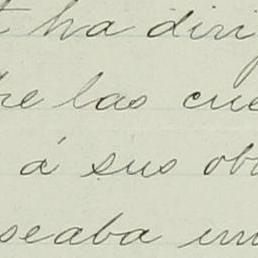 ha diri
re las cue
á sus ob
seaba un